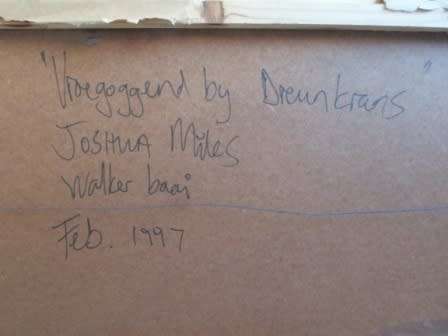 "Vroegoggend by Dreunkrans"
JOSHUA Miles
Walker baai
Feb. 1997